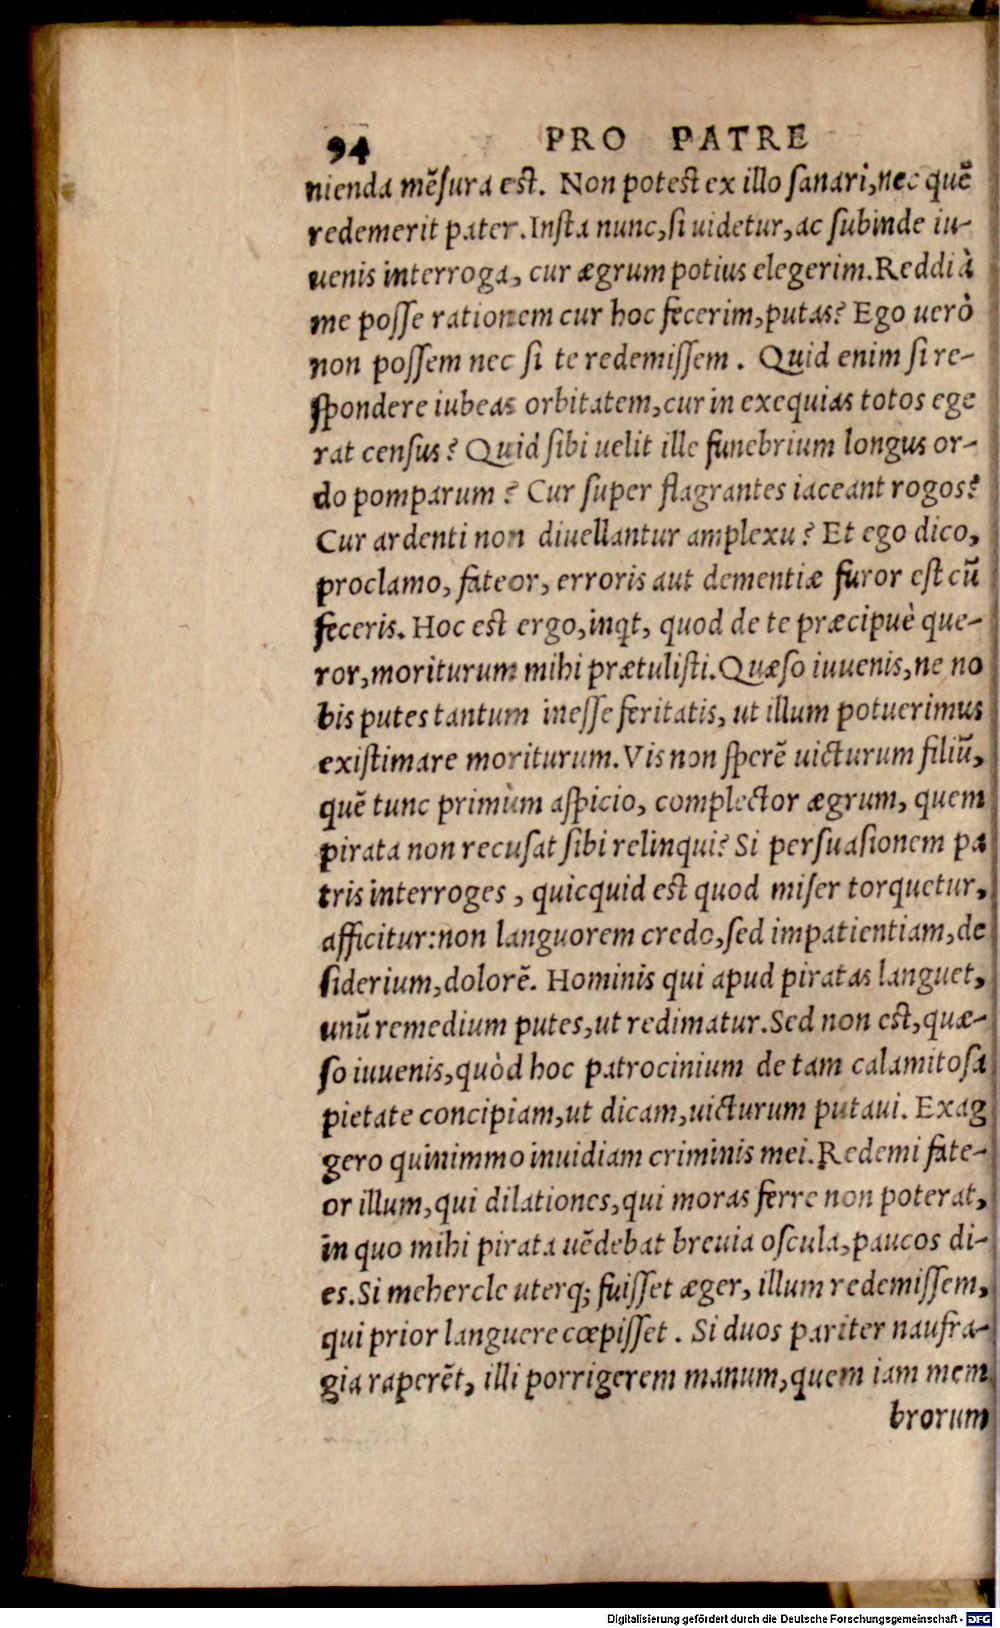 94 PRO PATRE
nienda mẽſura est. Non potest ex illo ſanari, nec quẽ
redemerit pater. Inſta nunc, ſi uidetur, ac ſubinde iu-
uenis interroga, cur ægrum potius elegerim. Reddi à
me poſſe rationem cur hoc fecerim, putas? Ego uerò
non poſſem nec ſi te redemiſſem. Quid enim ſi re-
ſpondere iubeas orbitatem, cur in exequias totos ege
rat cenſus? Quid ſibi uelit ille funebrium longus or-
do pomparum? Cur ſuper flagrantes iaceant rogos?
Cur ardenti non diuellantur amplexu? Et ego dico,
proclamo, fateor, erroris aut dementiæ furor est cũ
feceris. Hoc est ergo, inqt, quod de te præcipuè que-
ror, moriturum mihi prætuliſti. Quæſo iuuenis, ne no
bis putes tantum ineſſe feritatis, ut illum potuerimus
exiſtimare moriturum. Vis non ſperẽ uicturum filiũ,
quẽ tunc primùm aſpicio, complector ægrum, quem
pirata non recuſat ſibi relinqui? Si perſuaſionem pa
tris interroges, quicquid est quod miſer torquetur,
afficitur: non languorem credo, ſed impatientiam, de
ſiderium, dolorẽ. Hominis qui apud piratas languet,
unũ remedium putes, ut redimatur. Sed non est, quæ-
ſo iuuenis, quòd hoc patrocinium de tam calamitoſa
pietate concipiam, ut dicam, uicturum putaui. Exag
gero quinimmo inuidiam criminis mei. Redemi fate-
or illum, qui dilationes, qui moras ferre non poterat,
in quo mihi pirata uẽdebat breuia oſcula, paucos di-
es. Si mehercle uterq; fuiſſet æger, illum redemiſſem,
qui prior languere cœpiſſet. Si duos pariter naufra-
gia raperẽt, illi porrigerem manum, quem iam mem
brorum
Digitalisierung gefördert durch die Deutsche Forschungsgemeinschaft - DFG